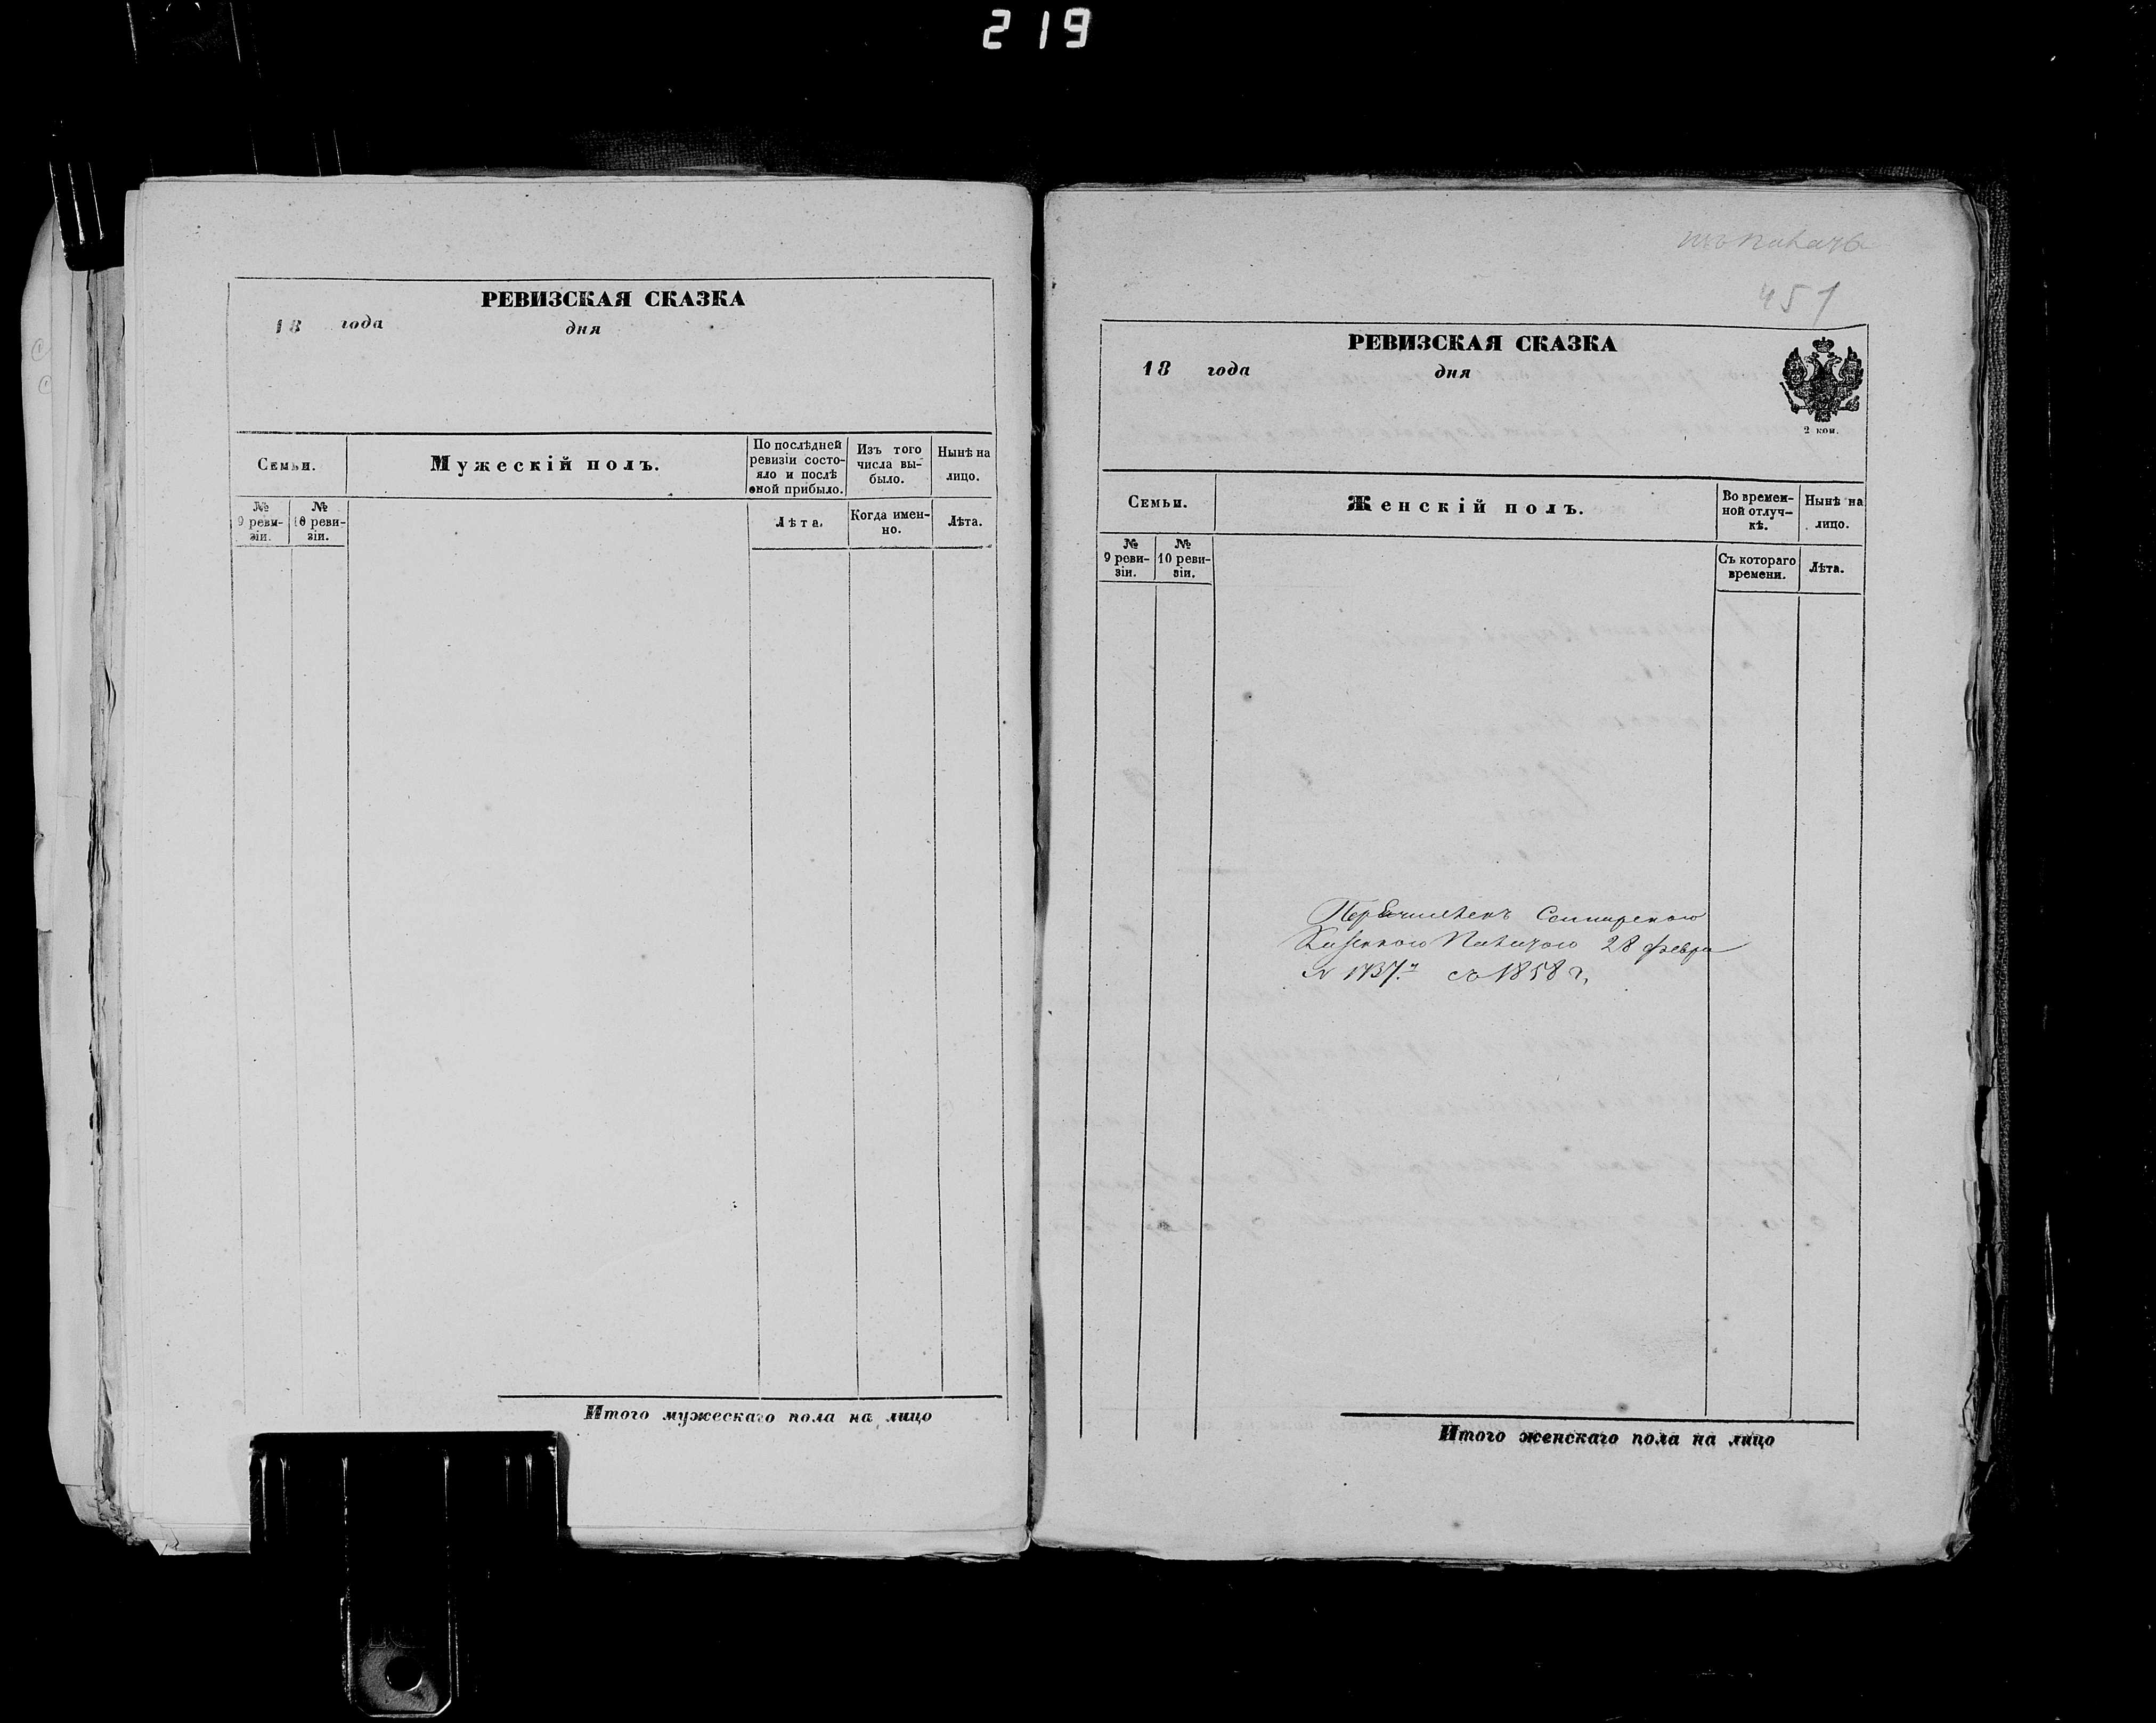 219
РЕВИЗСКАЯ СКАЗКА
18 года дня
Семьи.
Мужескій полъ.
По послѣдней ревизіи состояло и послѣ оной прибыло.
Изъ того числа выбыло.
Нынѣ на лицо.
№ 9 ревизіи.
№ 10 ревизіи.
Лѣта.
Когда именно.
Лѣта.
Итого мужескаго пола на лицо
451
РЕВИЗСКАЯ СКАЗКА
18 года дня
2 коп.
Семьи.
Женскій полъ.
Во временной отлучкѣ.
Нынѣ на лицо.
№ 9 ревизіи.
№ 10 ревизіи.
Съ котораго времени.
Лѣта.
Перечисленъ
Казенною Палатою 28 февра
№ 1737 съ 1858 г.
Итого женскаго пола на лицо